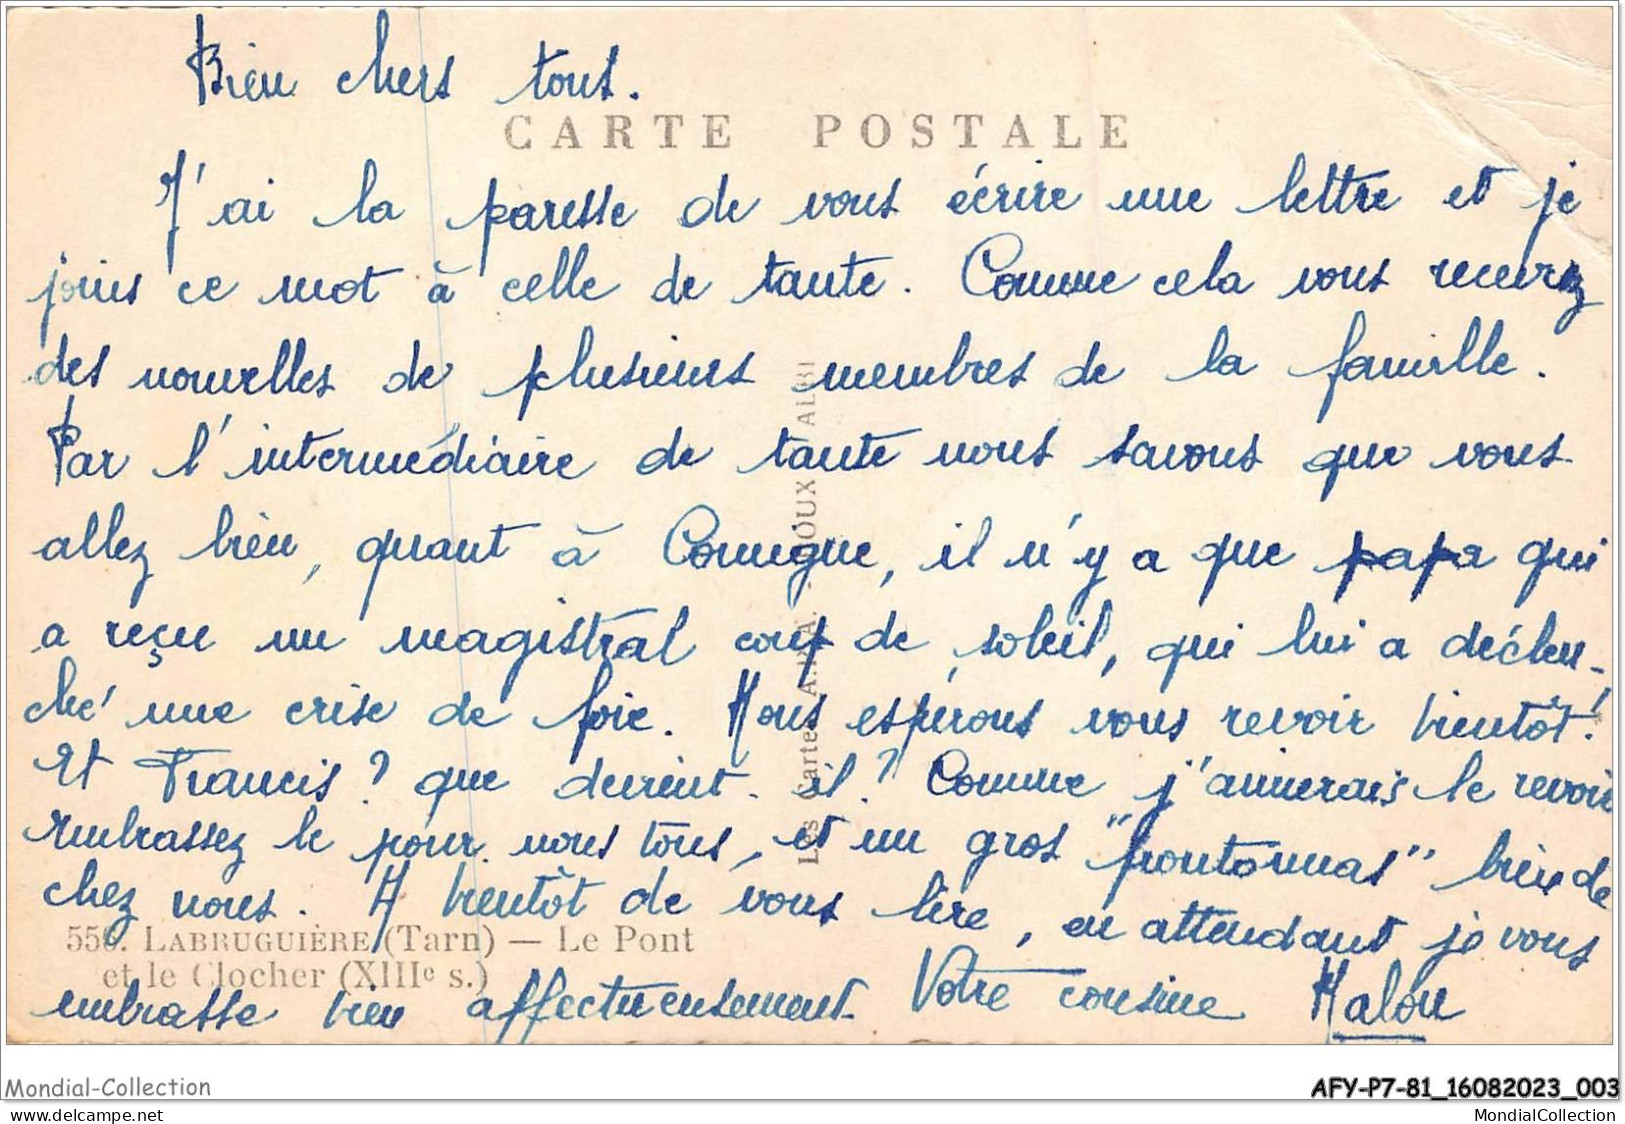 Bien chers tous.
CARTE POSTALE
J'ai la paresse de vous écrire une lettre et je
joins ce mot à celle de tante. Comme cela vous recevrez
des nouvelles de plusieurs membres de la famille.
Par l'intermédiaire de tante nous savons que vous
allez bien, quant à il n'y a que papa qui
a reçu un magistral coup de soleil, qui lui a déclen-
ché une crise de foie. Nous espérons vous revoir bientôt!
Et Francis? que devient-il? Comme j'aimerais le revoir
embrassez le pour nous tous, et un gros " " bien de
chez nous. A bientôt de vous lire, en attendant je vous
embrasse bien affectueusement. Votre cousine Malou
556. LABRUGUIÈRE (Tarn) — Le Pont
et le Clocher (XIIIe s.)
Les Cartes ALBI
Mondial-Collection
AFY-P7-81_16082023_003
www.delcampe.net
MondialCollection